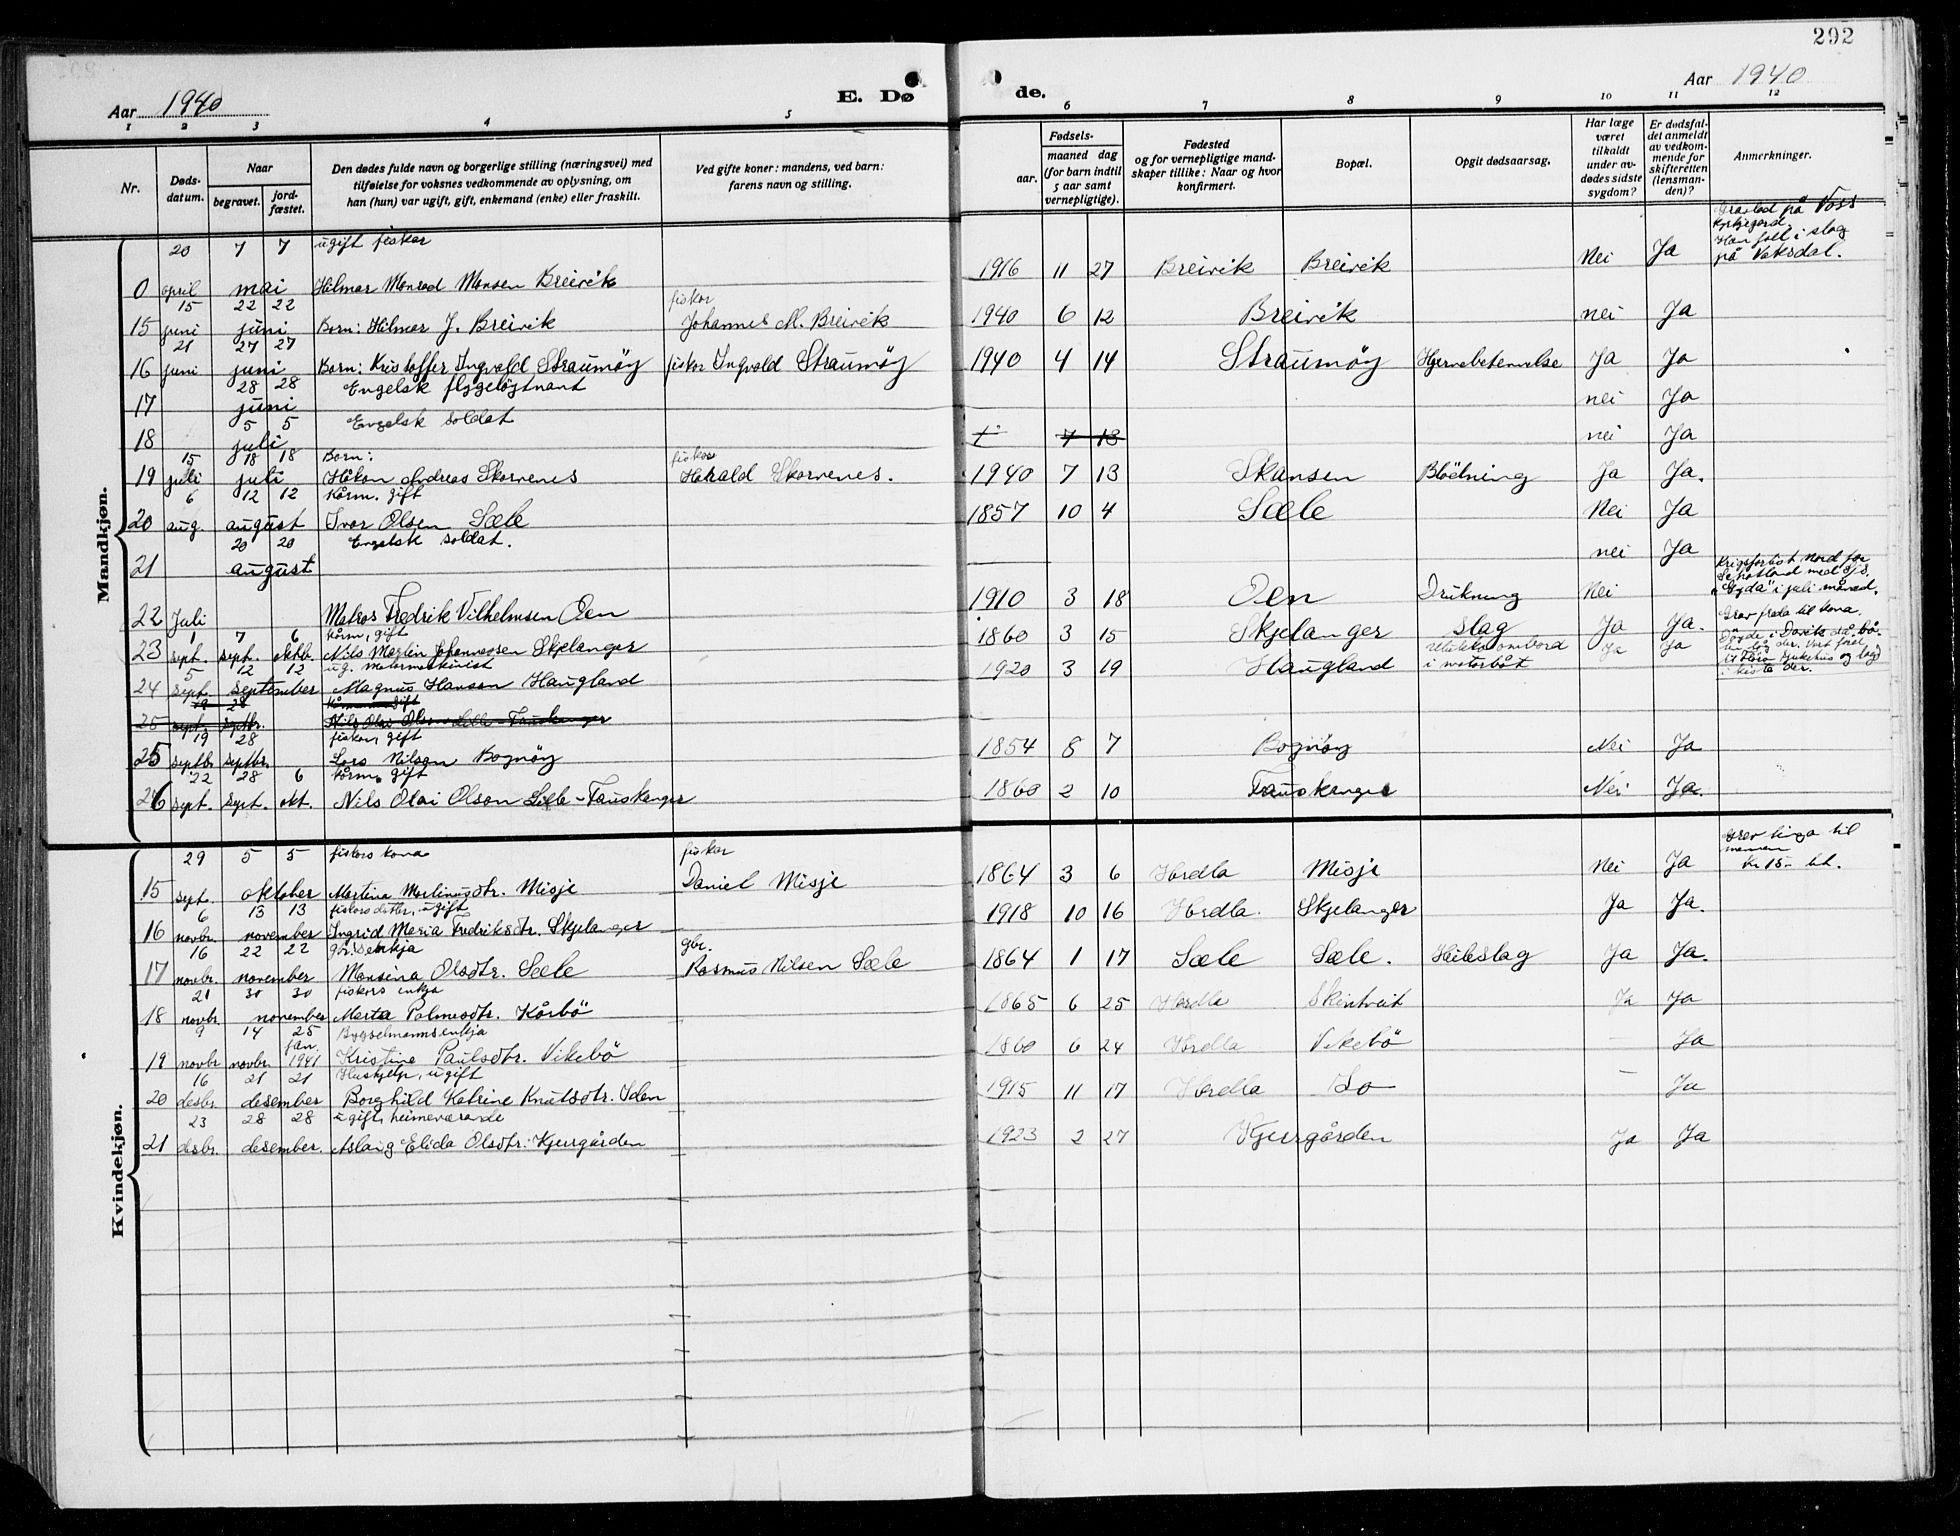 292
Aar 1940
E. Dø
de.
Aar 1940
1 2 3 4 5 6 7 8 9 10 11 12
Nr.
Døds-
datum.
Naar
begravet.
jord-
fæstet.
Den dødes fulde navn og borgerlige stilling (næringsvei) med
tilføielse for voksnes vedkommende av oplysning, om
han (hun) var ugift, gift, enkemand (enke) eller fraskilt.
Ved gifte koner: mandens, ved barn:
farens navn og stilling.
Fødsels-
aar.
maaned dag
(for barn indtil
5 aar samt
vernepligtige).
Fødested
og for vernepligtige mand-
skaper tillike: Naar og hvor
konfirmert.
Bopæl.
Opgit dødsaarsag.
Har læge
været
tilkaldt
under av-
dødes sidste
sygdom?
Er dødsfal-
det anmeldt
av vedkom-
mende for
skifteretten
(lensman-
den)?
Anmerkninger.
Mandkjøn.
20 7 7 ugift fiskar
0 april mai Hilmar Monrad Monsen Breivik 1916 11 27 Breivik Breivik Nei Ja
Gravlad på Voss
Kyrkjegard.
Han fall i slag
på Vaksdal.
15 22 22 fiskar
15 juni juni Born: Hilmar J. Breivik Johannes M. Breivik 1940 6 12 Breivik nei Ja
21 27 27
16 juni juni Born: Kristoffer Ingvald Straumøy fiskar Ingvald Straumøy 1940 4 14 Straumøy Hjernebetennelse Ja Ja
28 28 Engelsk flygeløytnant
17 juni nei Ja
5 5 Engelsk soldat
18 juli 7 13 nei Ja
15 18 18 Born: fiskar
19 juli juli Håkon Andreas Skorvenes Harald Skorvenes. 1940 7 13 Skansen Blödning Ja Ja.
6 12 12 Kårm. gift
20 aug. august Ivar Olsen Sæle 1857 10 4 Sæle Nei Ja
20 20 Engelsk soldat.
21 august nei Ja
22 Juli Matros Fredrik Vilhelmsen Oen 1910 3 18 Oen Drukning Nei
Krigsforlist nord for
Schotland med D/S
"Gyda" i juli månad.
1 7 6 kårm, gift
23 sept. sept. oktb. Nils Martin Johannessen Skjelanger 1860 3 15 Skjelanger slag Ja Ja.
Grav freda til kona.
5 12 12 ug. Motormaskinist
24 sept. september Magnus Hansen Haugland 1920 3 19 Haugland ombord i motorbåt Ja Ja
19 28 Kårmann gift
25 sept. septbr. Nils Olai Olsen Sæle-Tauskanger
19 28 fiskar, gift
25 septbr. septbr. Lars Nilsen Bognøy 1854 8 7 Bognøy Nei Ja
22 28 6 kårm. gift
26 sept. sept. okt. Nils Olai Olson Sæle-Tauskanger 1860 2 10 Tauskanger Nei Ja.
Kvindekjøn.
29 5 5 fiskars kona fiskar
15 sept. oktober Martina Martinusdtr. Misje Daniel Misje 1864 3 6 Herdla Misje Nei Ja
Grav til
mannen
Kr 15.- bet.
6 13 13 fiskars dotter, ugift
16 novbr. november Ingrid Maria Fredriksdtr. Skjelanger 1918 10 16 Herdla. Skjelanger Ja Ja.
16 22 22 gbr. enkja gbr.
17 novbr. november Monsina Olsdtr. Sæle Rasmus Nilsen Sæle 1864 1 17 Sæle Sæle. Heileslag Ja Ja.
21 30 30 fiskars enkja
18 novbr. november Marta Palmesdtr. Kårbö 1865 6 25 Herdla Ja Ja
9 14 25 Bygselmanns enkja
jan.
19 novbr. novbr. 1941 Kristine Paulsdtr. Vikebö 1860 6 24 Herdla Vikebö - Ja
16 21 21 Huskjelp, ugift
20 desbr. desember Borghild Katrine Knutsdtr. Iden 1915 11 17 Herdla - Ja
23 28 28 ugift, heimeværande
21 desbr. desember Aslaug Elida Olsdtr. Kjeurgården 1923 2 27 Kjeurgården Ja Ja